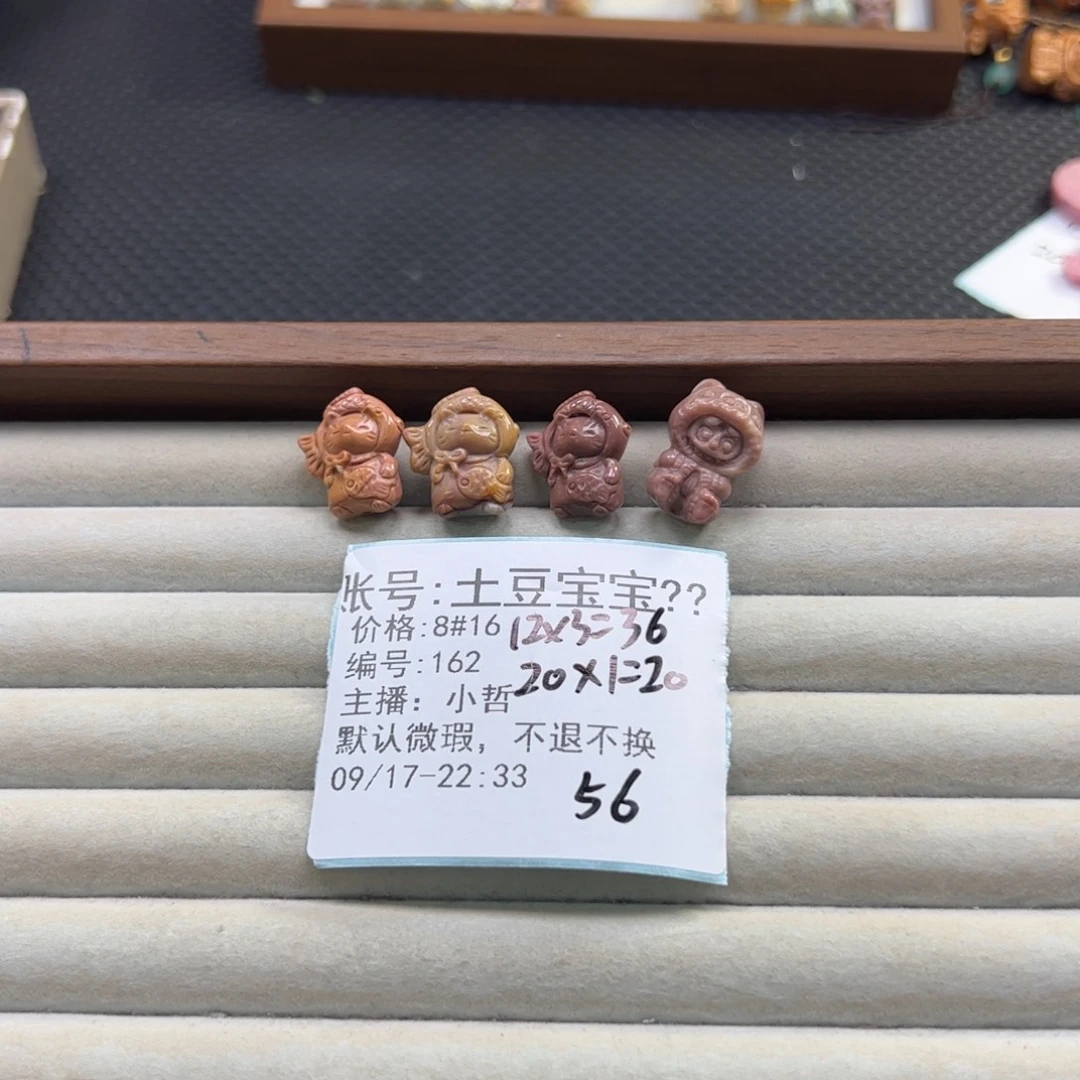 账号:土豆宝宝??
价格:8#16 12x3=36
编号:162 20x1=20
主播: 小哲
默认微瑕, 不退不换
09/17-22:33
56